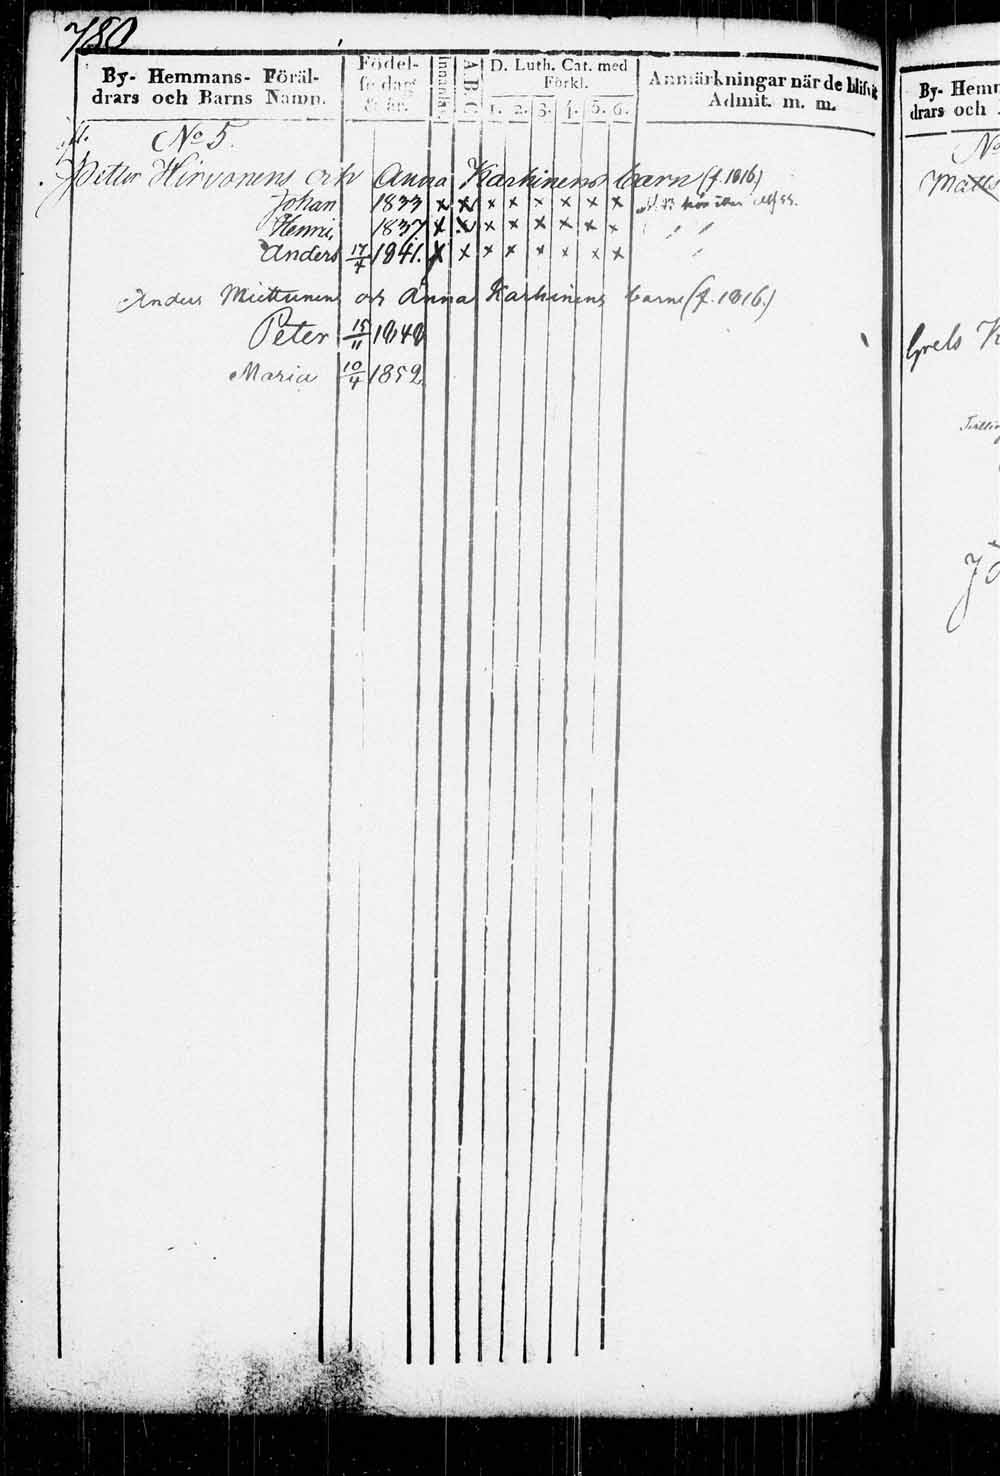 780
By- Hemmans- Föräl-
drars och Barns Namn.
Födel-
se dag
& år.
Innanläs.
A B C
D. Luth. Cat. med
Förkl.
1. 2. 3. 4. 5. 6.
Anmärkningar när de blifvit
Admit. m. m.
No 5.
Petter Hirvonens och Anna Karhinens barn (f. 1816)
Johan 1833 x x x x x x x x
Henric 1837 x x x x x x x x
Anders 17/4 1841. x x x x x x x x
Anders Miettunens och Anna Karhinens barn (f. 1816.)
Peter 15/11 1848
Maria 10/4 1852
By- Hem
drars och
No
Matts
Grels K
Jo